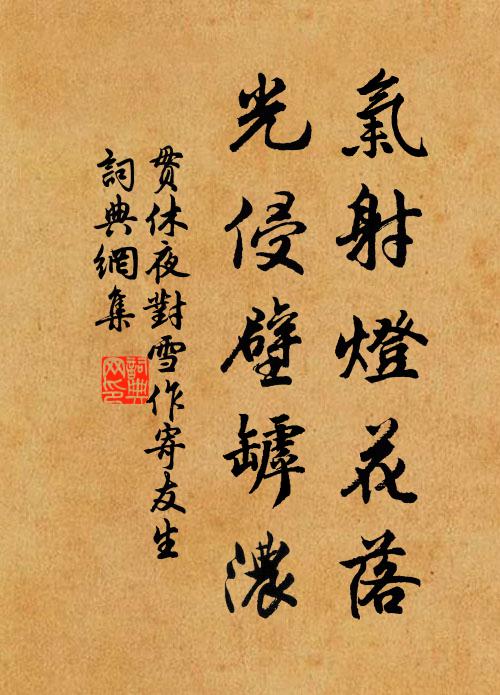 氣射燈花落
光侵壁罅濃
貫休夜對雪作寄友生
詞典網集
詞典网印